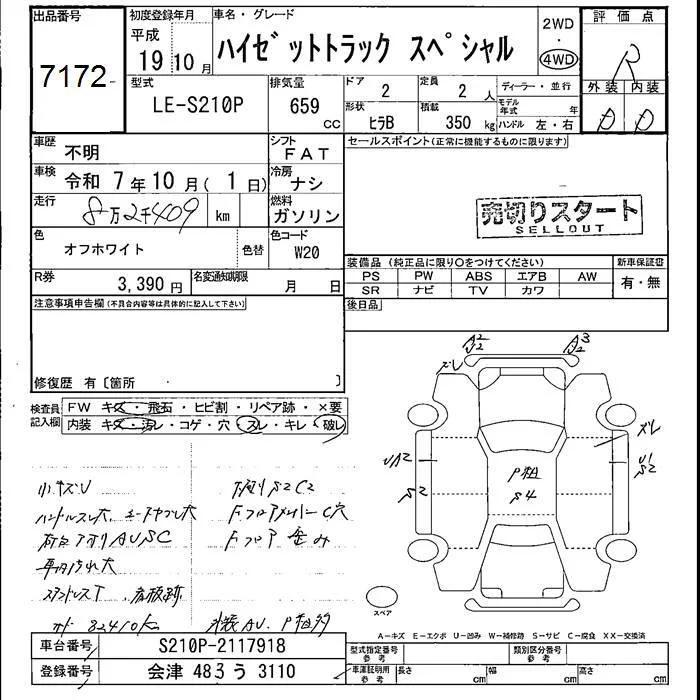 出品番号
7172
初度登録年月
平成
19 10 月
車名・グレード
ハイゼットトラック スペシャル
2WD
・
4WD
評価点
R
外装 内装
D D
型式
LE-S210P
排気量
659
cc
ドア
2
定員
2 人
ディーラー・並行
形状
ヒラB
積載
350 kg
モデル年式 年
ハンドル 左・右
車歴
不明
シフト
FAT
車検
令和 7年10月(1日)
冷房
ナシ
走行
8万2千409
km
燃料
ガソリン
色
オフホワイト
色替
色コード
W20
R券
3,390円
名変通知期限
月 日
セールスポイント(正常に機能するものに限ります)
売切りスタート
SELLOUT
装備品 (純正品に限り○をつけてください)
新車保証書
PS PW ABS エアB AW
SR ナビ TV カワ
有・無
後日品
注意事項申告欄(不具合内容等は具体的に記入して下さい)
修復歴 有〔箇所 〕
検査員記入欄
FW キズ・飛石・ヒビ割・リペア跡・×要
内装 キズ・汚レ・コゲ・穴・スレ・キレ・破レ
小キズU
下廻りS2C2
ハンドルスレ大
FフロアメンバーC穴
Fフロア歪み
車内汚れ大
オド 82410K
A2
2
A3
2
ズレ
ズレ
UA2
S2
U1
S2
P粗
S4
スペア
A-キズ E-エクボ U-凹み W-補修跡 S-サビ C-腐食 XX-交換済
車台番号
S210P-2117918
登録番号
会津 483 う 3110
型式指定番号
参考
類別区分番号
参考
車庫証明用
参考
長さ cm
幅 cm
高さ cm